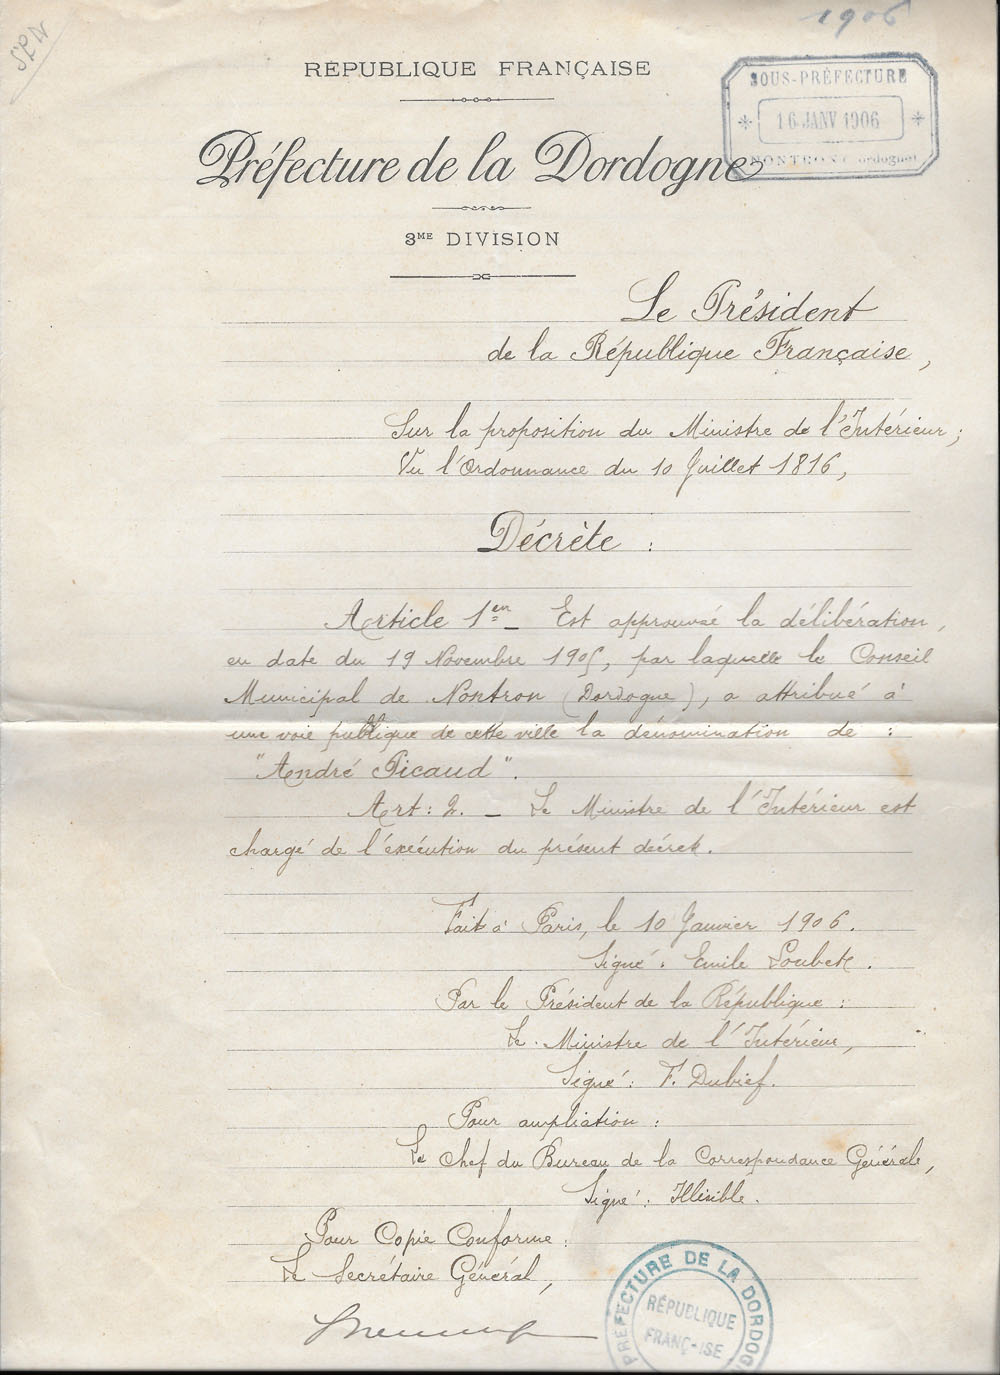 1906
RÉPUBLIQUE FRANÇAISE
SOUS-PRÉFECTURE
16 JANV 1906
NONTRON (Dordogne)
Préfecture de la Dordogne
3ME DIVISION
Le Président
de la République Française,
Sur la proposition du Ministre de l'Intérieur;
Vu l'Ordonnance du 10 Juillet 1816,
Décrète :
Article 1er _ Est approuvée la délibération,
en date du 19 Novembre 1905, par laquelle le Conseil
Municipal de Nontron (Dordogne), a attribué à
une voie publique de cette ville la dénomination de :
"André Picaud".
Art: 2. _ Le Ministre de l'Intérieur est
chargé de l'exécution du présent décret.
Fait à Paris, le 10 Janvier 1906.
Signé : Emile Loubet.
Par le Président de la République :
Le Ministre de l'Intérieur,
Signé : F. Dubief.
Pour ampliation :
Le Chef du Bureau de la Correspondance Générale,
Signé : Illisible.
Pour Copie Conforme :
Le Secrétaire Général,
PRÉFECTURE DE LA DORDOG
RÉPUBLIQUE
FRANÇ-ISE